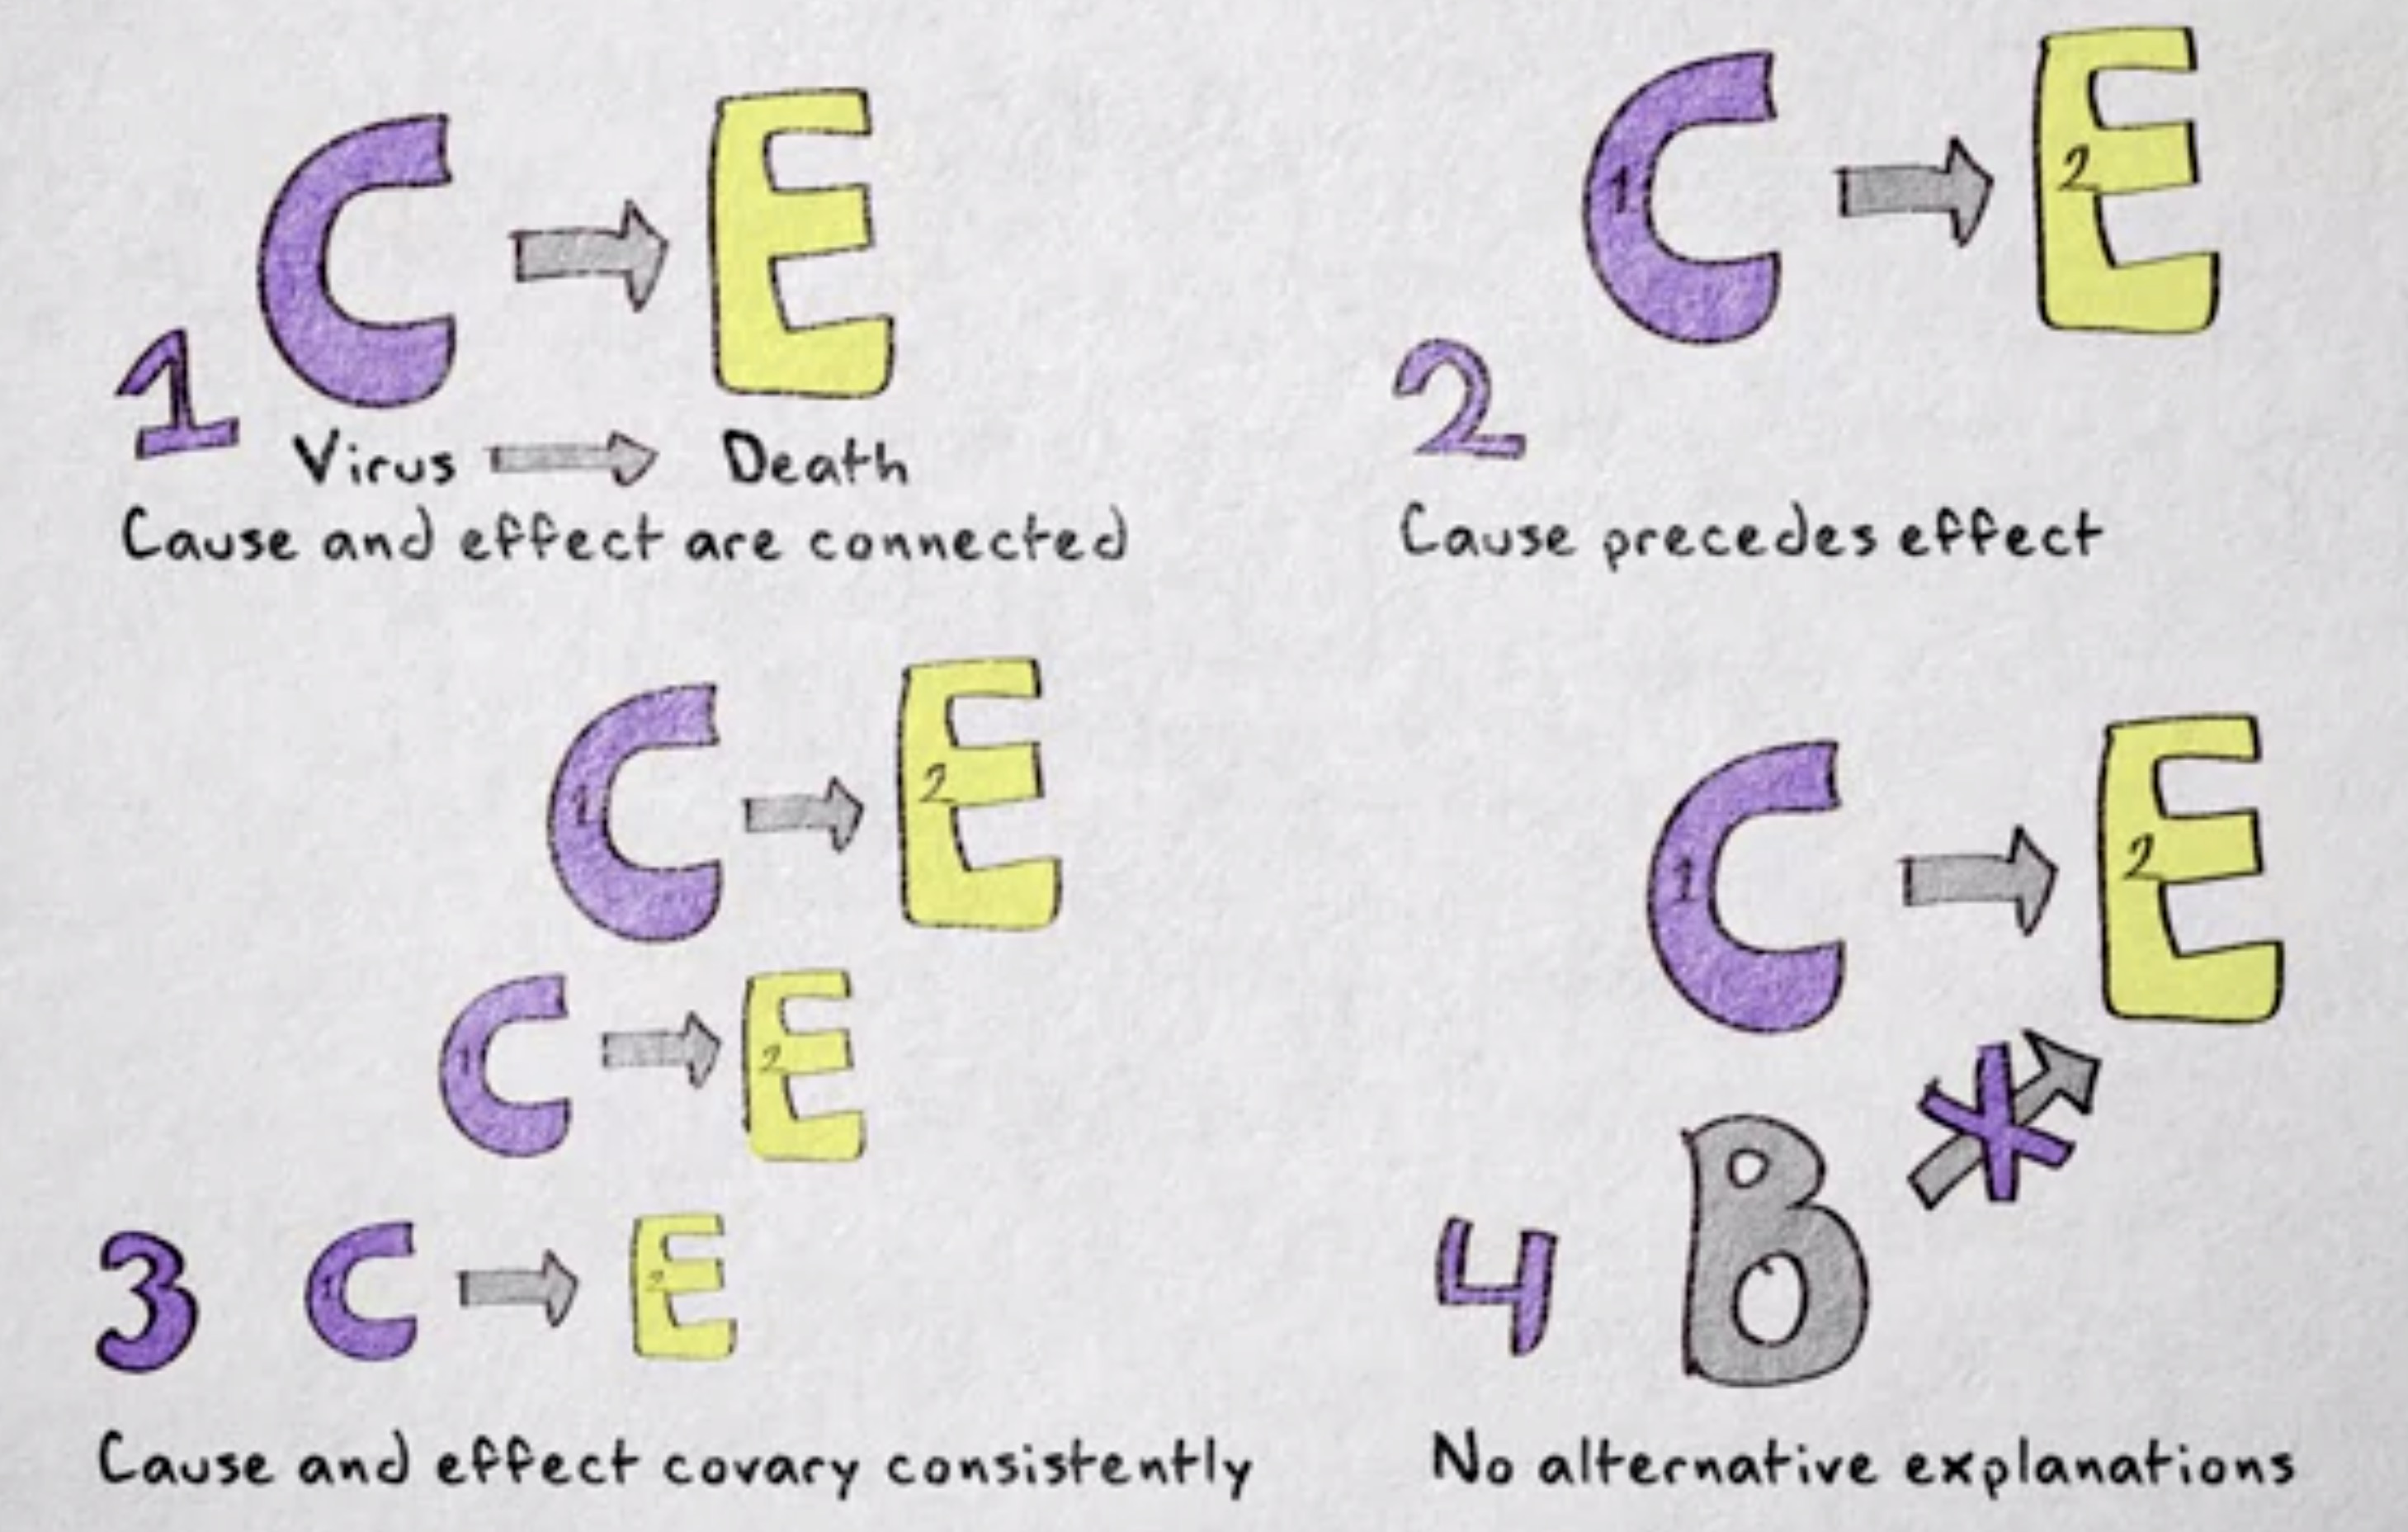 C → E
1
Virus → Death
Cause and effect are connected
C → E
1 2
2
Cause precedes effect
C → E
1 2
C → E
1 2
3 C → E
1 2
Cause and effect covary consistently
C → E
1 2
4 B
No alternative explanations